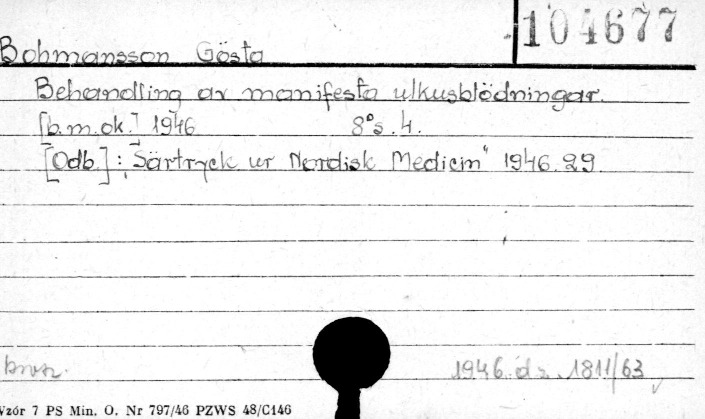 104677
Bohmansson Gösta
Behandling av manifesta ulkusblödningar.
[b.m.ok.] 1946 8° s. 4.
[Odb.]: „Särtryck ur Nordisk Medicin" 1946.29.
brosz.
1946. dz. 1811/63
Wzór 7 PS Min. O. Nr 797/46 PZWS 48/C146